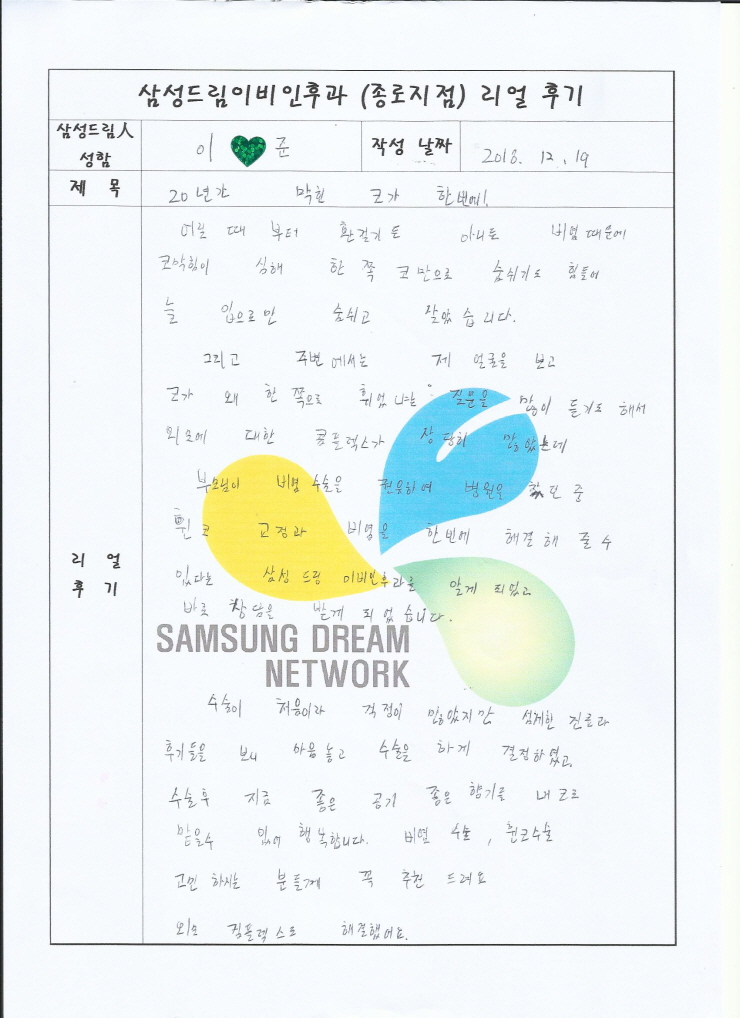 삼성드림이비인후과 (종로지점) 리얼 후기
삼성드림人 성함
이 준
작성 날짜
2018. 12. 19
제 목
20년간 막힌 코가 한번에!
리 얼
후 기
어릴 때 부터 환절기도 아니도 비염때문에
코막힘이 심해 한 쪽 코만으로 숨쉬기도 힘들어
늘 입으로만 숨쉬고 잘았습니다.
그리고 주변에서는 제 얼굴을 보고
코가 왜 한 쪽으로 휘었냐는 질문을 많이 듣기도 해서
외모에 대한 콤플렉스가 상당히 많았는데
부모님이 비염 수술을 권유하여 병원을 찾던 중
휜 코 교정과 비염을 한번에 해결해 줄 수
있다는 삼성 드림 이비인후과를 알게 되었고
바로 상담을 받게 되었습니다.
SAMSUNG DREAM
NETWORK
수술이 처음이라 걱정이 많았지만 섬세한 진료과
후기들을 보니 마음놓고 수술을 하게 결정하였고
수술후 지금 좋은 공기 좋은 향기를 내코로
맡을수 있어 행복합니다. 비염 수술, 휜코수술
고민 하시는 분들께 꼭 추천 드려요
외모 컴플렉스도 해결했어요.